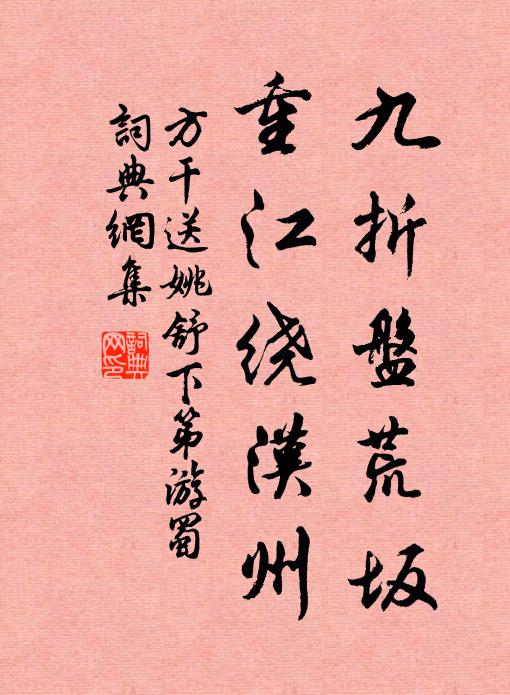 九折盤荒坂
重江绕漢州
方干送姚舒下第游蜀
詞典網集
詞典网印